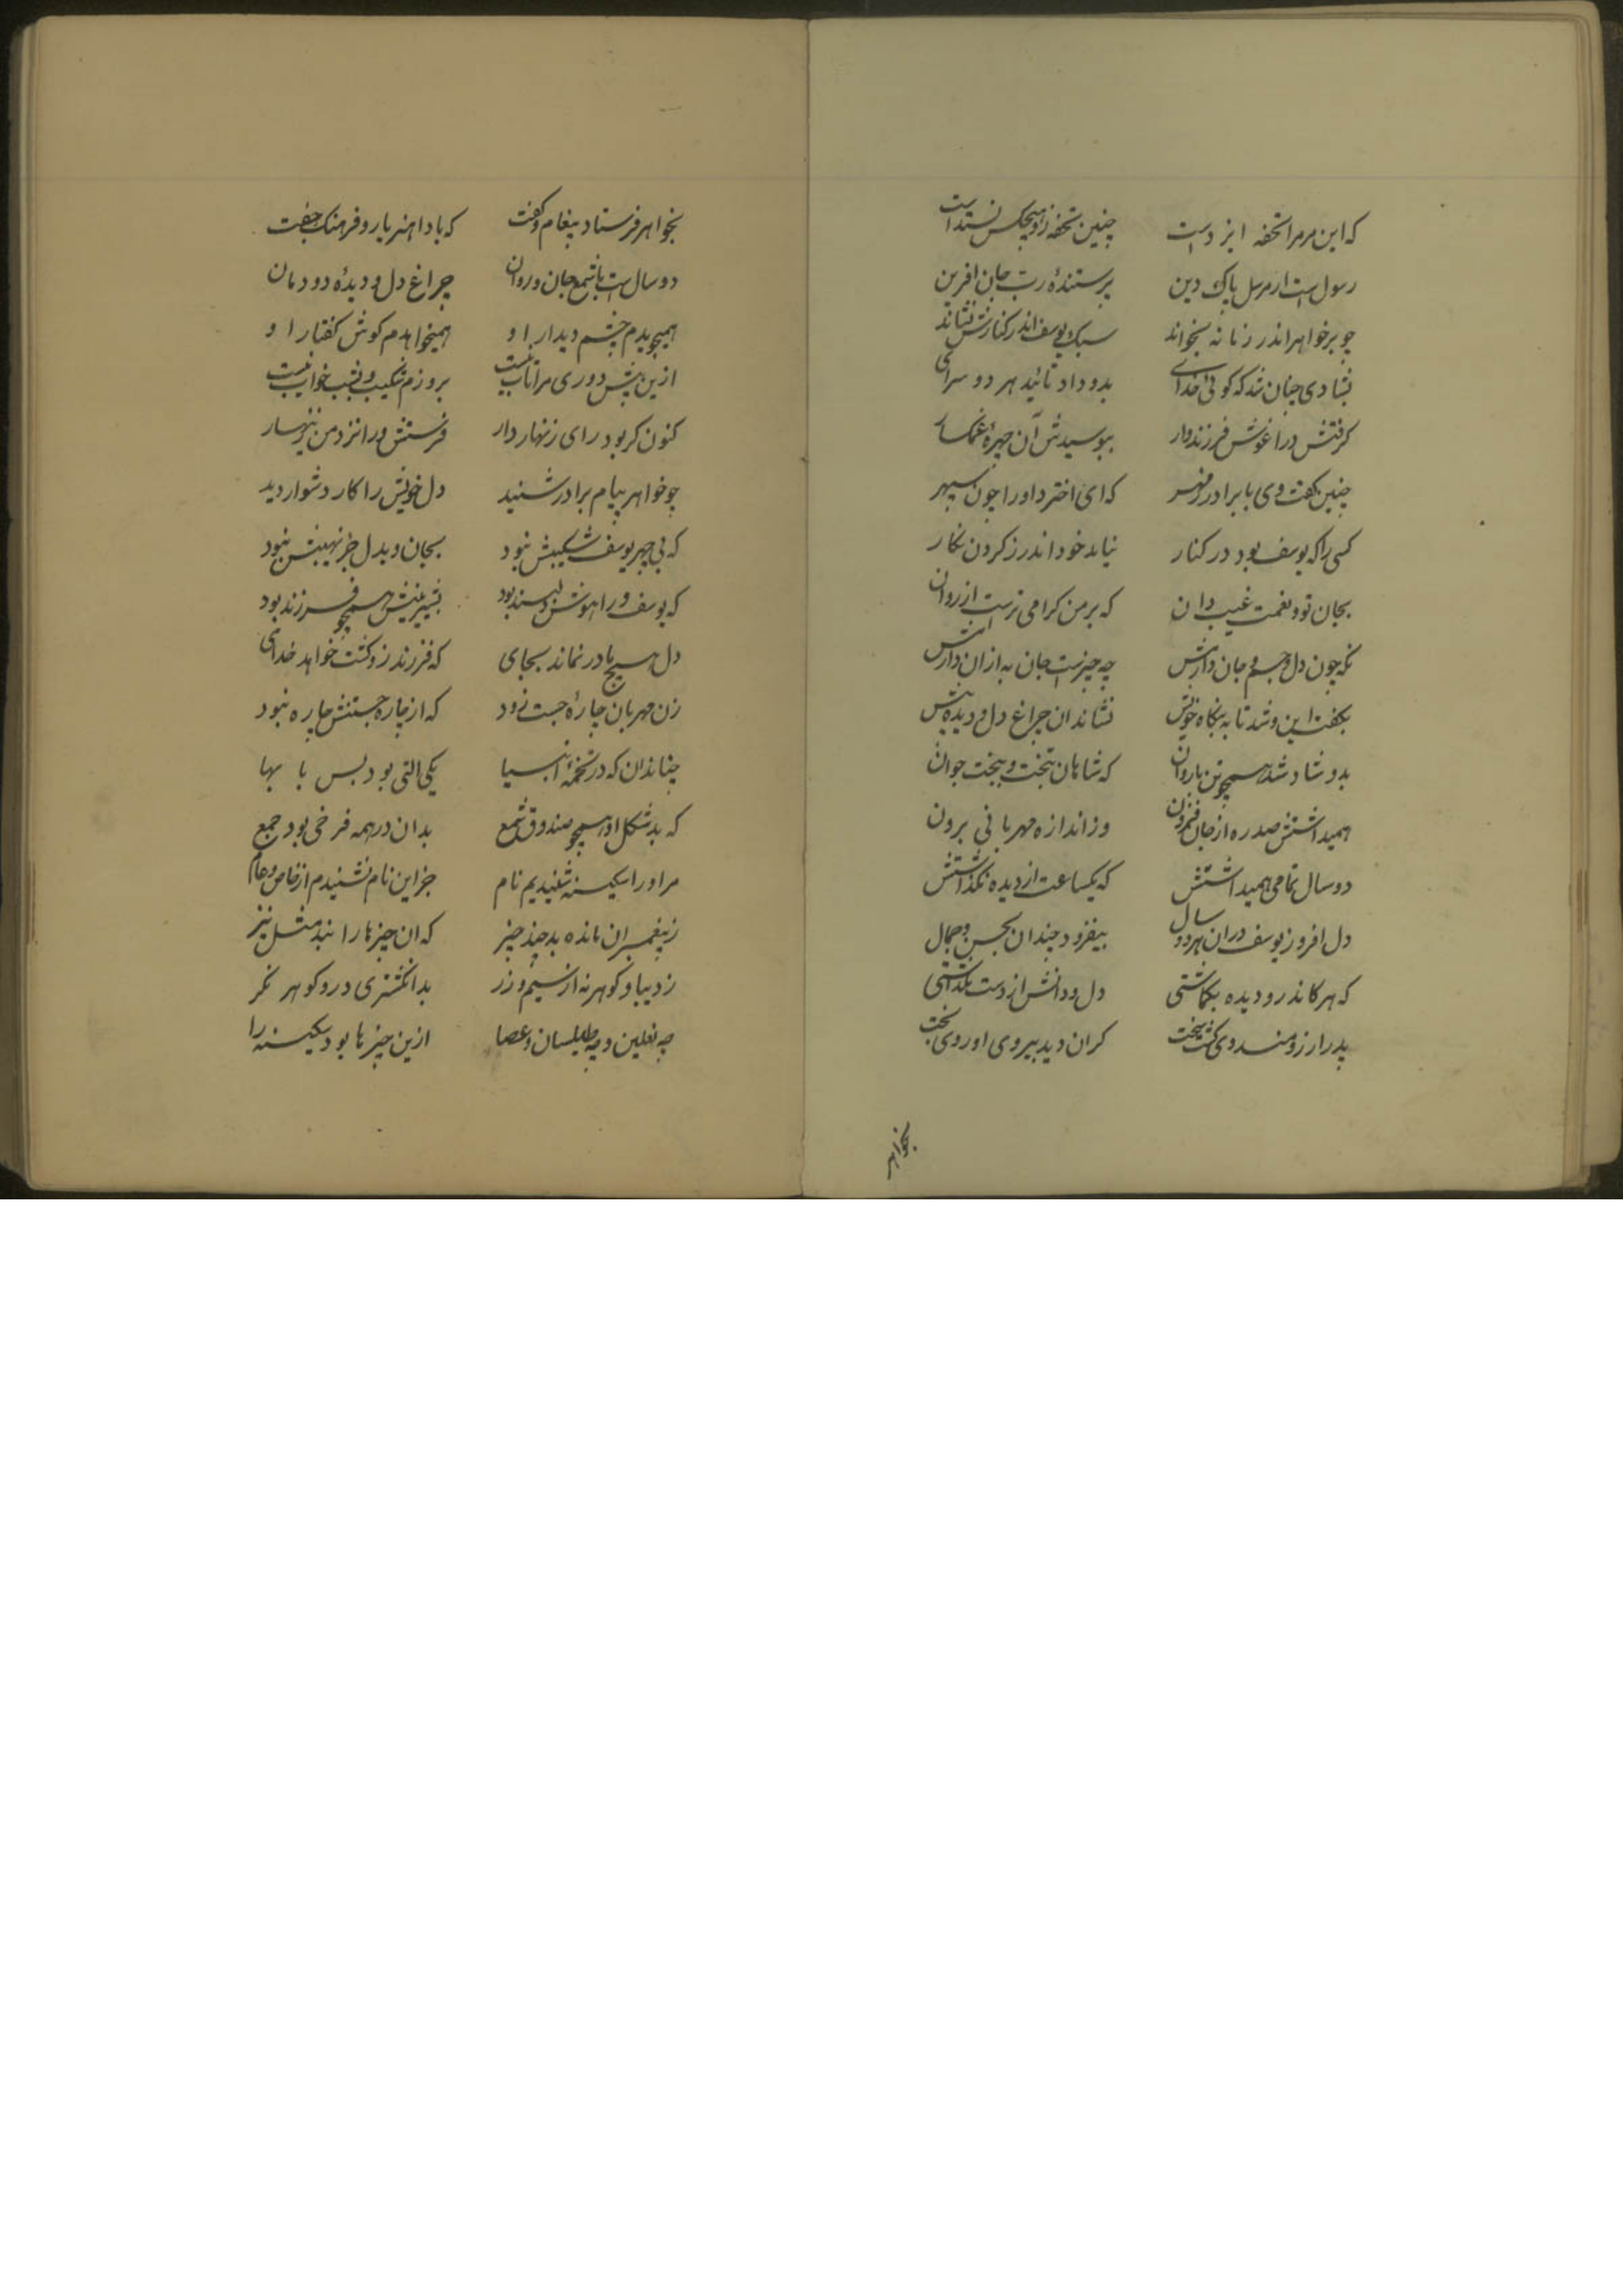 که این مرمرا تحفه ایزدست چنین تحفه زو هیچکس نستداست
رسول است ارمرسل پاک دین پرستندهٔ رب جان افرین
چو برخواهر اندر زنانه بخواند سبک یوسف اندر کنارش نشاند
بشادی چنان شد که کوئی خدای بدو داد تائید هر دو سرای
کرفتش در اغوش فرزندوار ببوسیدش آن چهرهٔ غمکسار
چنین کفت وی با برادر زمهر که ای اختر داور اچون سپهر
کسی را که یوسف بود در کنار نیاید خود اندر ز کردن نکار
بجان تو و نعمت غیب دان که بر من کرامی ترست از روان
نکه چون دل و جسم و جان دارمش چه چیزست جان به ازان دارمش
بکفت این و شد تا به بنکاه خویش نشاند ان چراغ دل و دیده پیش
بدو شاد شد همچو تن باروان که شاهان بتخت و ببخت جوان
همیداشتش صدره از جان فزون وز اندازه مهربانی برون
دو سال تمامی همیداشتش که یکساعت از دیده نکذاشتش
دل افروز یوسف دران هر دو سال بیفزود چندان بحسن و جمال
که هر کاندرو دیده بکماشتی دل و دانش از دست بکذاشتی
پدر ارزومند وی کشت سخت کران دید بیروی او روی بخت
بخواهر
بخواهر فرستاد پیغام و کفت که بادا هنر یار و فرهنک جفت
دو سال ست با شمع جان و روان چراغ دل و دیدهٔ دودمان
همیجویدم چشم دیدار او همیخواهدم کوش کفتار او
ازین بیش دوری مرا تاب نیست بروزم شکیب و بشب خواب نیست
کنون کر بود رای زنهار دار فرستش ورا نزد من بنهسار
چو خواهر پیام برادر شنید دل خویش را کار دشوار دید
که بی چهر یوسف شکیبش نبود بجان و بدل جز نهیبش نبود
که یوسف ورا هوش و لبسند بود بشیرینیش همچو فرزند بود
دل هیچ مادر نماند بجای که فرزند زو کشت خواهد خدای
زن مهربان چارهٔ جست زود که از چاره جستنش چاره نبود
چنان دان که در تخمهٔ انبیا یکی التی بود بس با بها
که بد شکل او همچو صندوق شمع بدان در همه فرخی بود جمع
مر او را سکینه شنیدیم نام جز این نام نشنیدم از خاص و عام
ز پیغمبران مانده بد چند چیز که ان چیزها را نبد مثل نیز
ز دیبا و کوهر نه از سیم و زر بد انکشتری در و کوهر نکر
چه نعلین و چه طیلسان و عصا ازین چیزها بود سکینه را